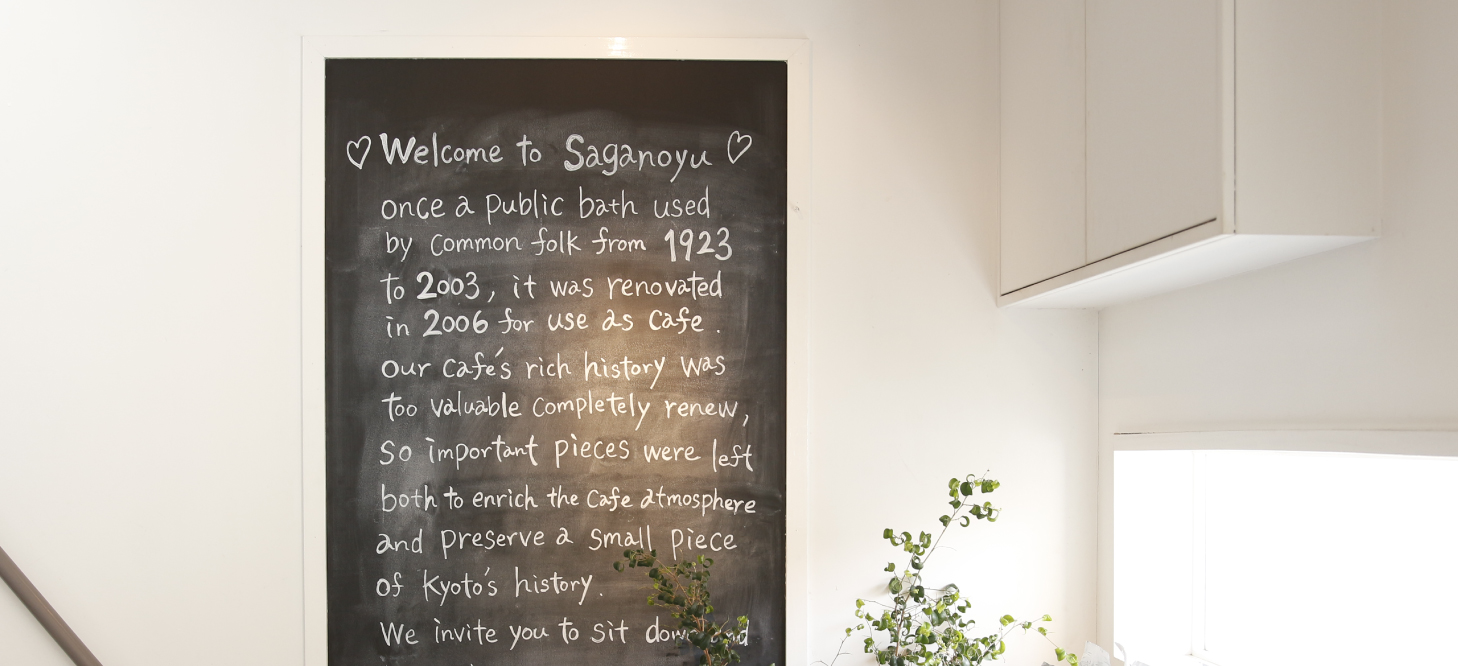 ♡ Welcome to Saganoyu ♡
once a public bath used
by common folk from 1923
to 2003, it was renovated
in 2006 for use as cafe.
Our cafe's rich history was
too valuable completely renew,
So important pieces were left
both to enrich the cafe atmosphere
and preserve a small piece
of Kyoto's history.
We invite you to sit down and